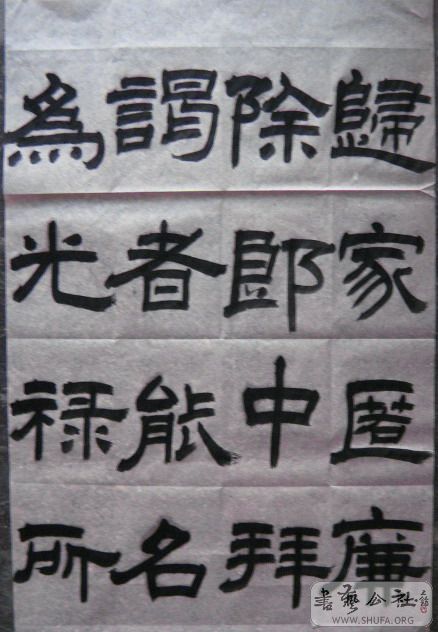 歸家匿廉
除郎中拜
謁者能名
為光禄所
書藝公社
WWW.SHUFA.ORG